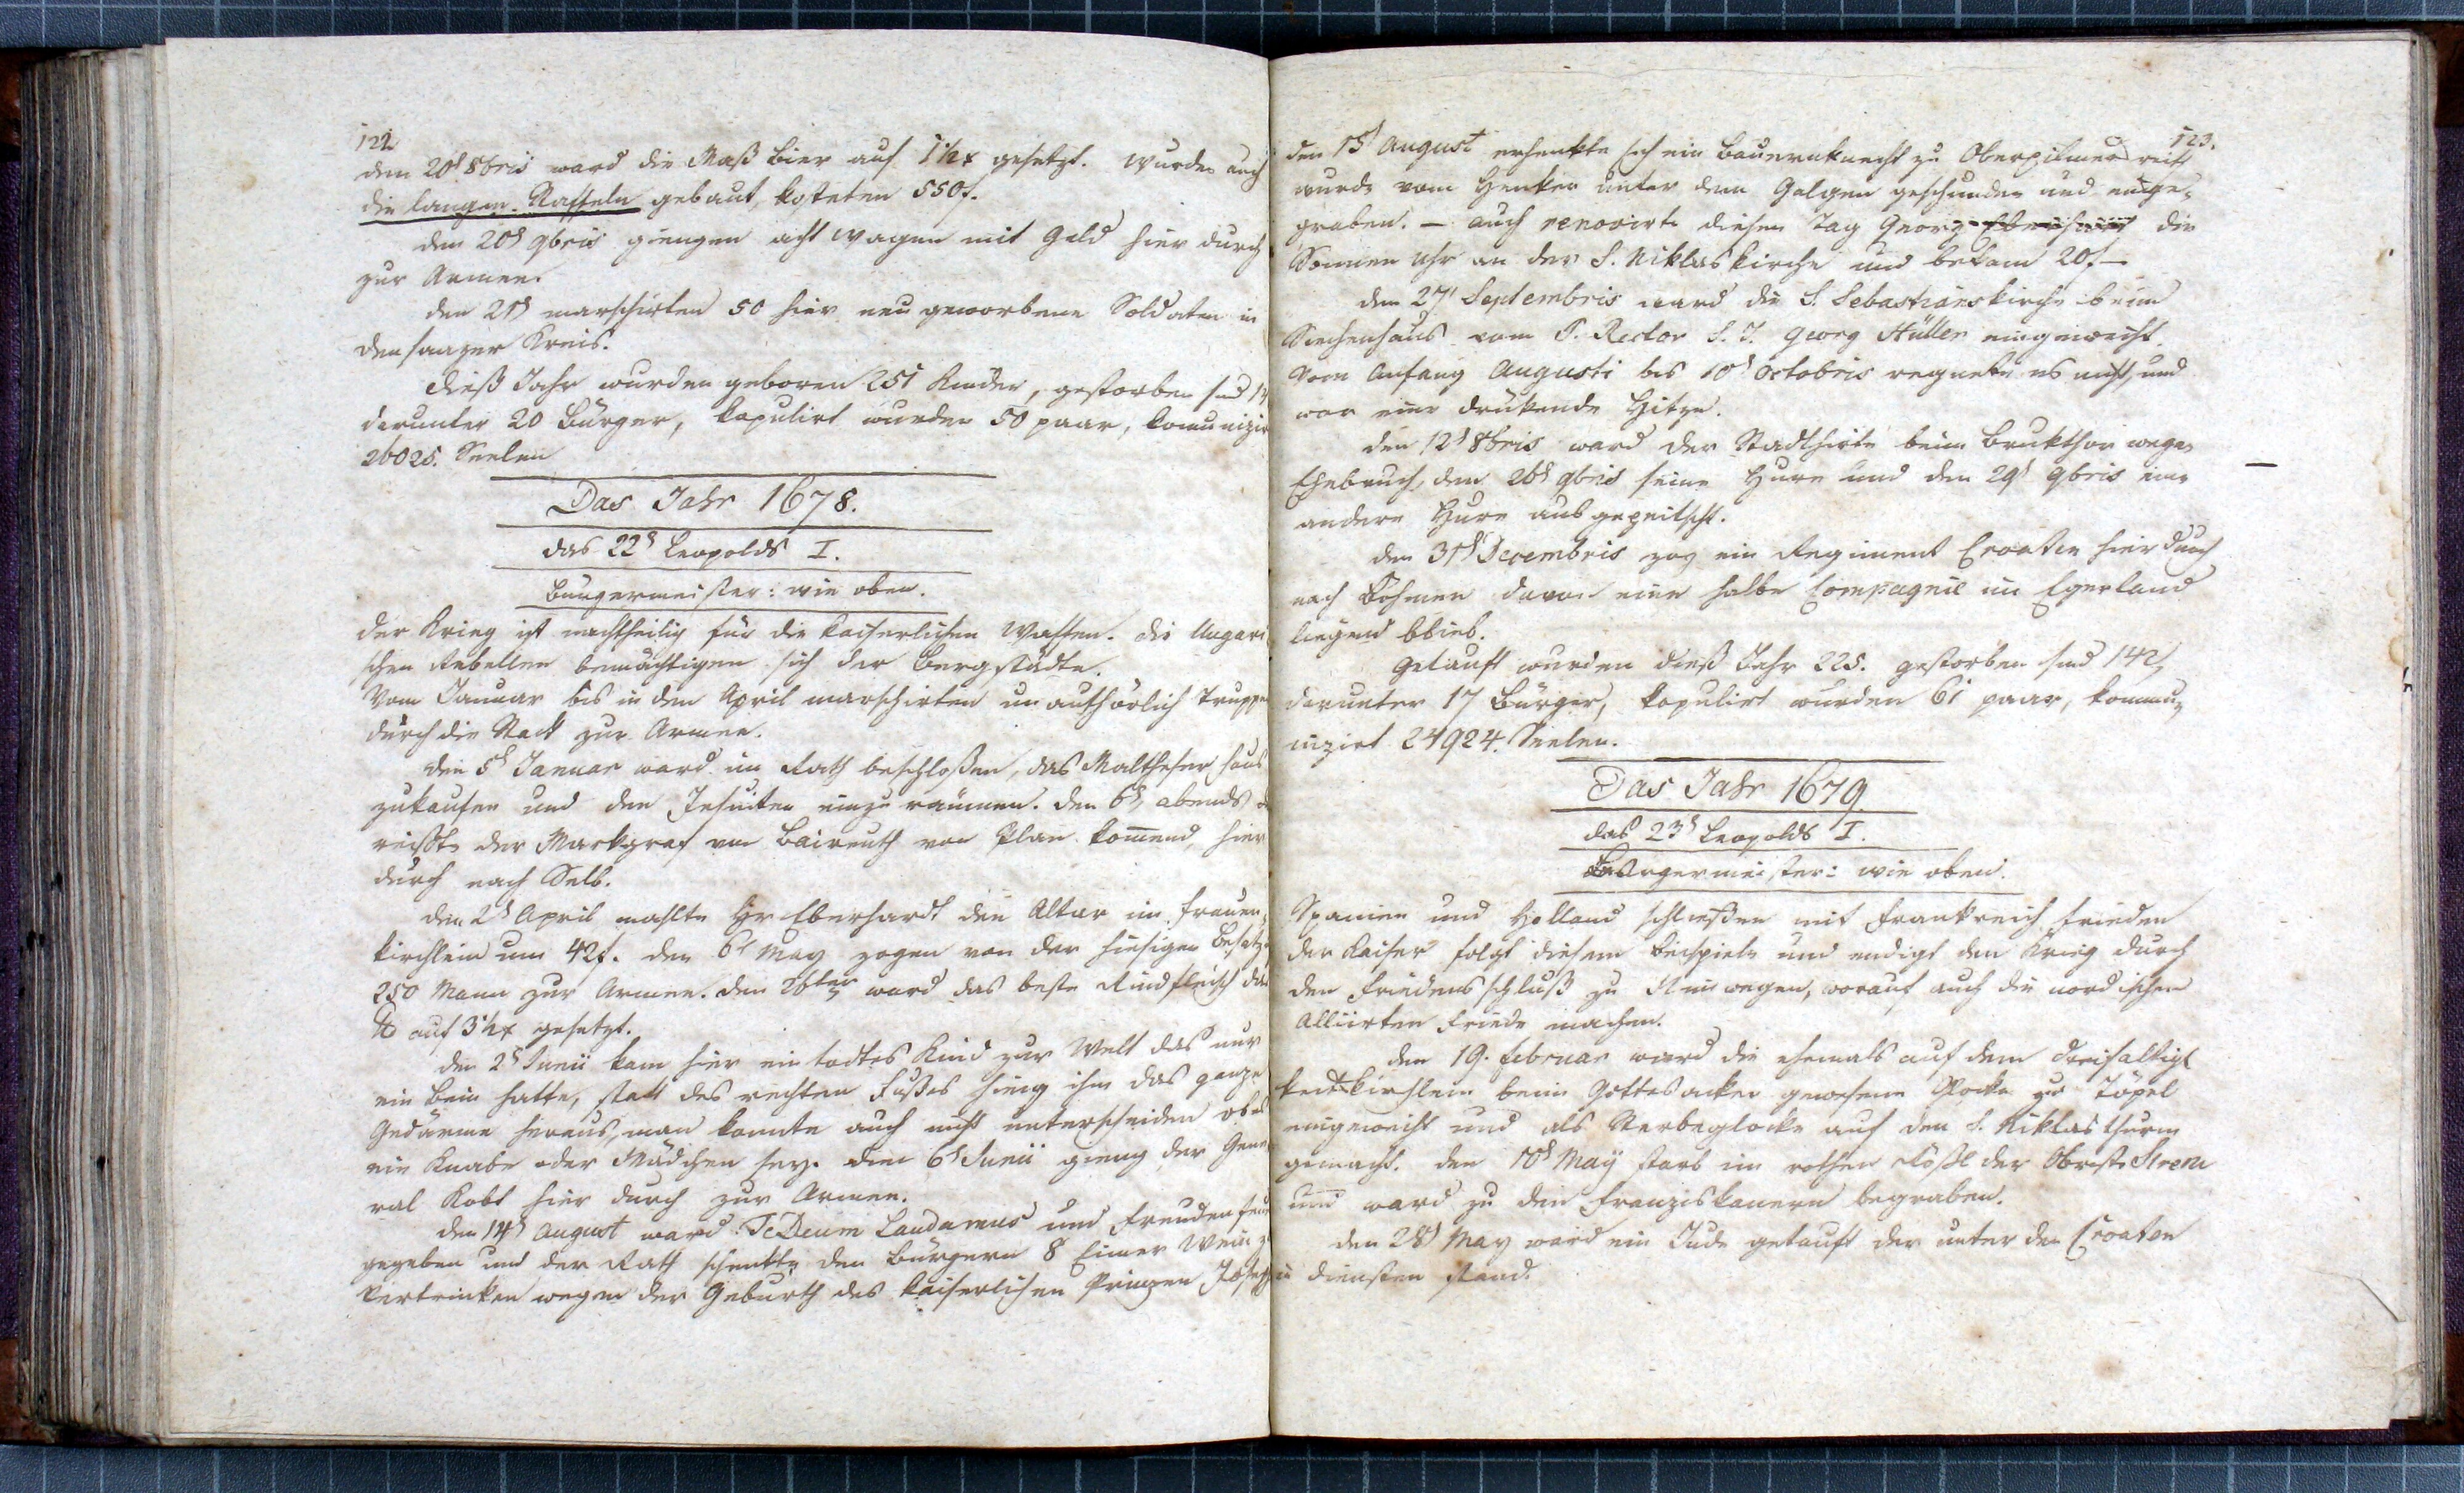 122
den 20t 8bris ward die Maß Bier auf 1½x gesetzt. wurden auch
die langen Raffeln gebaut, kosteten 550f.
den 20t 9bris giengen acht Wagen mit Geld hier durch
zur Armee.
den 21t marschirten 50 hier neu geworbene Soldaten in
den saazer Kreis.
dieß Jahr wurden geboren 251 Kinder, gestorben sind
darunter 20 Bürger, kopulirt wurden 50 paar, komunizir
26025. Seelen
Das Jahr 1678.
das 22t Leopolds I.
Bürgermeister: wie oben.
der Krieg ist nachtheilig für die kaiserlichen Waffen. die Ungari
schen Rebellen bemächtigen sich der Bergstädte.
Vom Januar bis in den April marschirten unaufhörlich Truppen
durch die Stadt zur Armee.
den 5t Januar ward im Rath beschloßen, das Maltheser haus
zukaufen und den Jesuiten einzuräumen. den 6t abends
reißte der Markgraf von Baireuth von Plan komend, hier
durch nach Selb.
den 2t April mahlte Hr Eberhardt den Altar im Frauen,
kirchlein um 42f. den 6t May zogen von der hiesigen Besatz
250 Mann zur Armee. den 26ten ward das beste Rindfleisch das
℔ auf 3½x gesetzt.
den 2t Junii kam hier ein todtes Kind zur Welt das nur
ein Bein hatte, statt des rechten Fußes hieng ihm das ganze
Gedärme heraus, man konnte auch nicht unterscheiden ob es
ein Knabe oder Mädchen sey. den 6t Junii gieng der Gene
ral Kobt hier durch zur Armee.
den 14t August ward Te Deum Laudamus und Freudenfeuer
gegeben und der Rath schenkte den Bürgern 8 Eimer Wein
Vertrinken wegen der Geburth des kaiserlichen Prinzen Joseph
123.
den 15t August erhenkte sich ein Bauernknecht zu Oberpilmersreith
wurde vom Henker unter dem Galgen geschunden und einge,
graben. – auch renovirte diesen Tag Georg Eberhard die
Sonnen Uhr an der S. Niklaskirche und bekam 20f –
den 27t Septembris ward die S. Sebastianskirche beim
Siechenhaus vom P. Rector S. J. Georg Müller eingeweiht.
Vom Anfang Augusti bis 10t Octobris regnete es nicht, und
war eine drükende Hitze.
den 12t 8bris ward der Stadthirte beim Brukthor wegen
Ehebruch, den 26t 9bris seine Hure und den 29t 9bris eine
andere Hure ausgepeitscht.
den 31t Decembris zog ein Regiment Croaten hier durch
nach Böhmen davon eine halbe Compagnie im Egerland
liegend blieb.
Getauft wurden dieß Jahr 225. gestorben sind 142,
darunter 17 Bürger, kopulirt wurden 61 paar, kommu,
nizirt 24924. Seelen.
Das Jahr 1679
das 23t Leopolds I.
Bürgermeister: wie oben.
Spanien und Holland schließen mit Frankreich Frieden
der Kaiser folgt diesem Beispiele und endigt den Krieg durch
den Friedensschluß zu Nimwegen, worauf auch die nordischen
Alliirten Friede machen.
den 19. Februar ward die ehemals auf dem Dreifaltigk
keitskirchlein beim Gottesacker gewesene Glocke zu Töpel
eingeweiht und als Sterbeglocke auf den S. Niklas thurm
gemacht. den 10t May starb im rothen Rößl der Obrist Sirem
und ward zu den Franziskanern begraben.
den 28t May ward ein Jude getauft der unter den Croaten
in diensten stand.